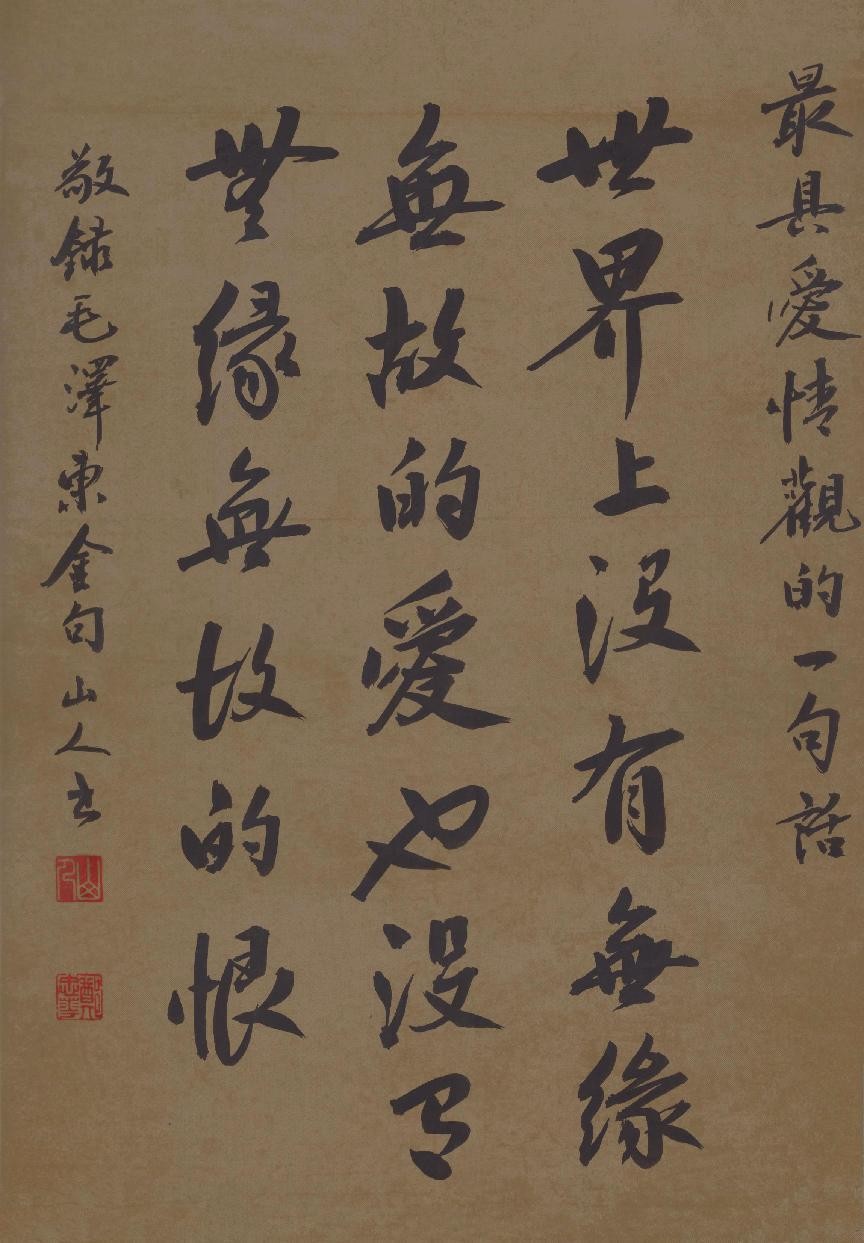 最具愛情觀的一句話
世界上没有無緣
無故的愛也没有
無緣無故的恨
敬錄毛澤東金句山人书
山人